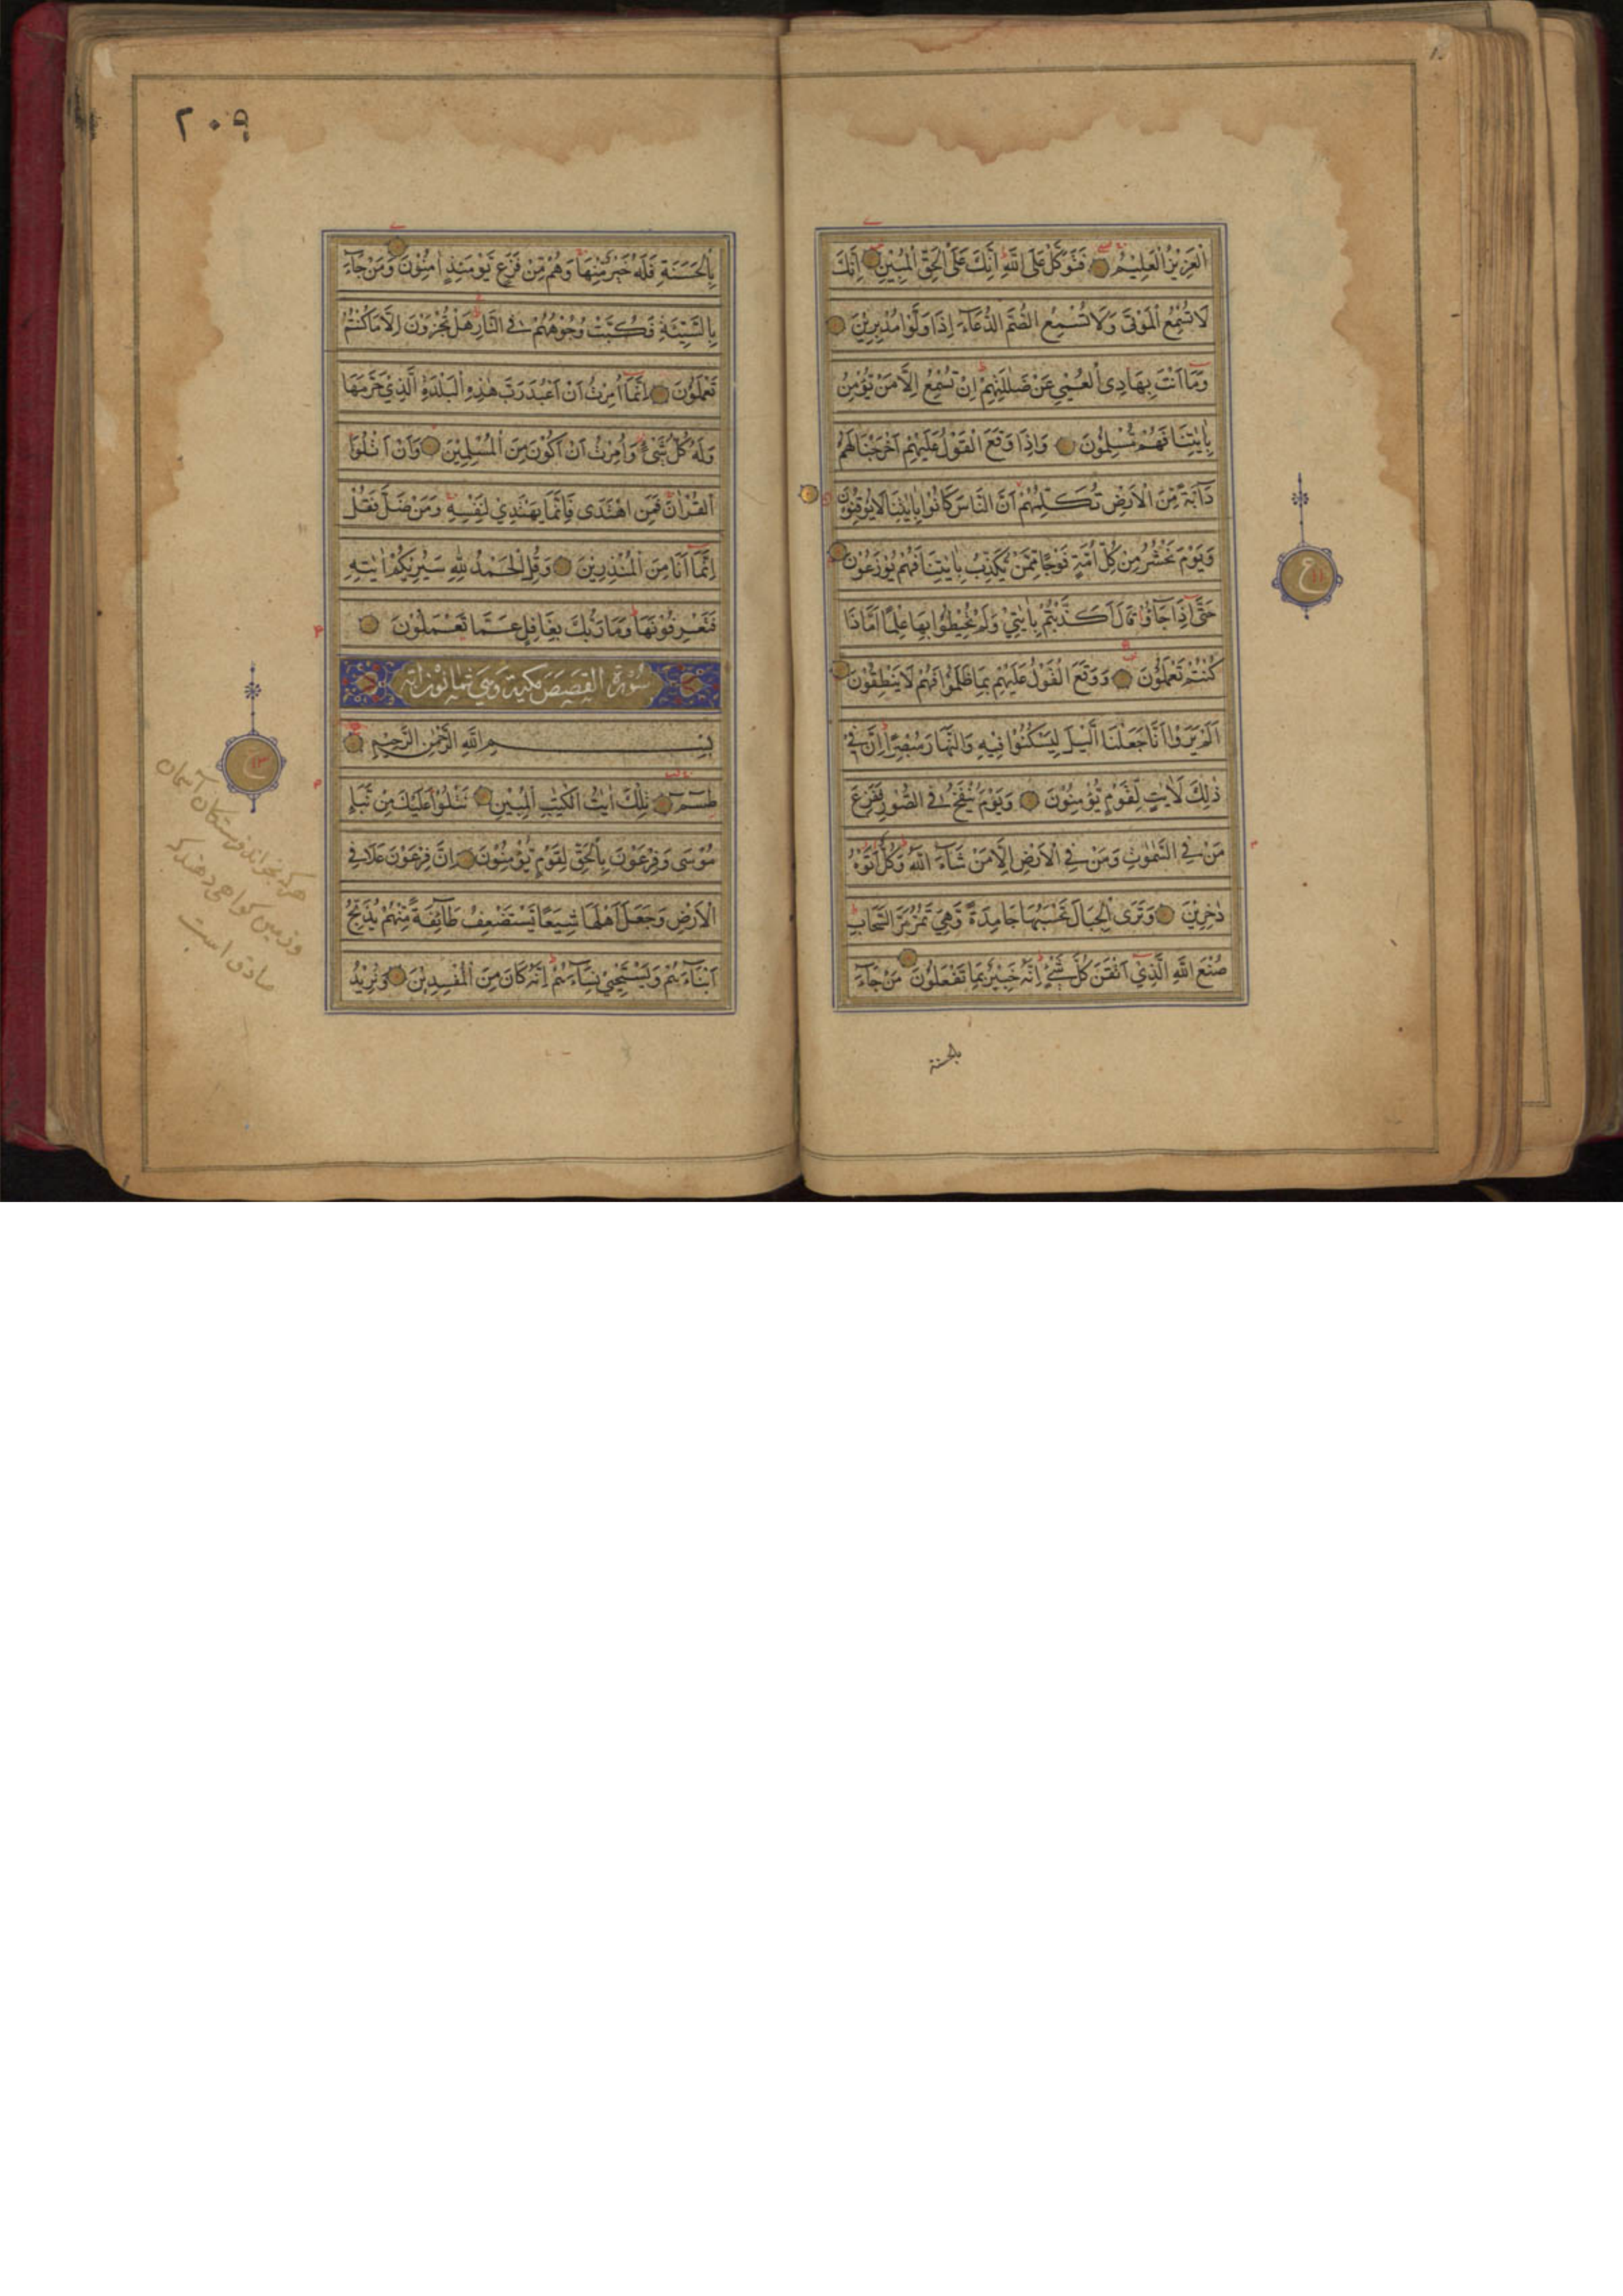 الْعَزِيْزُ الْعَلِيْمُ فَتَوَكَّلْ عَلَى اللّٰهِ اِنَّكَ عَلَى الْحَقِّ الْمُبِيْنِ اِنَّكَ
لَا تُسْمِعُ الْمَوْتٰى وَلَا تُسْمِعُ الصُّمَّ الدُّعَآءَ اِذَا وَلَّوْا مُدْبِرِيْنَ
وَمَآ اَنْتَ بِهَادِى الْعُمْيِ عَنْ ضَلٰلَتِهِمْ اِنْ تُسْمِعُ اِلَّا مَنْ يُّؤْمِنُ
بِاٰيٰتِنَا فَهُمْ مُّسْلِمُوْنَ وَاِذَا وَقَعَ الْقَوْلُ عَلَيْهِمْ اَخْرَجْنَا لَهُمْ
دَآبَّةً مِّنَ الْاَرْضِ تُكَلِّمُهُمْ اَنَّ النَّاسَ كَانُوْا بِاٰيٰتِنَا لَا يُوْقِنُوْنَ
وَيَوْمَ نَحْشُرُ مِنْ كُلِّ اُمَّةٍ فَوْجًا مِّمَّنْ يُّكَذِّبُ بِاٰيٰتِنَا فَهُمْ يُوْزَعُوْنَ
حَتّٰٓى اِذَا جَآؤُا قَالَ اَكَذَّبْتُمْ بِاٰيٰتِيْ وَلَمْ تُحِيْطُوْا بِهَا عِلْمًا اَمَّاذَا
كُنْتُمْ تَعْمَلُوْنَ وَوَقَعَ الْقَوْلُ عَلَيْهِمْ بِمَا ظَلَمُوْا فَهُمْ لَا يَنْطِقُوْنَ
اَلَمْ يَرَوْا اَنَّا جَعَلْنَا الَّيْلَ لِيَسْكُنُوْا فِيْهِ وَالنَّهَارَ مُبْصِرًا اِنَّ فِيْ
ذٰلِكَ لَاٰيٰتٍ لِّقَوْمٍ يُّؤْمِنُوْنَ وَيَوْمَ يُنْفَخُ فِى الصُّوْرِ فَفَزِعَ
مَنْ فِى السَّمٰوٰتِ وَمَنْ فِى الْاَرْضِ اِلَّا مَنْ شَآءَ اللّٰهُ وَكُلٌّ اَتَوْهُ
دٰخِرِيْنَ وَتَرَى الْجِبَالَ تَحْسَبُهَا جَامِدَةً وَّهِيَ تَمُرُّ مَرَّ السَّحَابِ
صُنْعَ اللّٰهِ الَّذِيْٓ اَتْقَنَ كُلَّ شَيْءٍ اِنَّهٗ خَبِيْرٌ بِمَا تَفْعَلُوْنَ مَنْ جَآءَ
بالحسنة
٢٠٩
بِالْحَسَنَةِ فَلَهٗ خَيْرٌ مِّنْهَا وَهُمْ مِّنْ فَزَعٍ يَّوْمَئِذٍ اٰمِنُوْنَ وَمَنْ جَآءَ
بِالسَّيِّئَةِ فَكُبَّتْ وُجُوْهُهُمْ فِى النَّارِ هَلْ تُجْزَوْنَ اِلَّا مَا كُنْتُمْ
تَعْمَلُوْنَ اِنَّمَآ اُمِرْتُ اَنْ اَعْبُدَ رَبَّ هٰذِهِ الْبَلْدَةِ الَّذِيْ حَرَّمَهَا
وَلَهٗ كُلُّ شَيْءٍ وَّاُمِرْتُ اَنْ اَكُوْنَ مِنَ الْمُسْلِمِيْنَ وَاَنْ اَتْلُوَا
الْقُرْاٰنَ فَمَنِ اهْتَدٰى فَاِنَّمَا يَهْتَدِيْ لِنَفْسِهٖ وَمَنْ ضَلَّ فَقُلْ
اِنَّمَآ اَنَا مِنَ الْمُنْذِرِيْنَ وَقُلِ الْحَمْدُ لِلّٰهِ سَيُرِيْكُمْ اٰيٰتِهٖ
فَتَعْرِفُوْنَهَا وَمَا رَبُّكَ بِغَافِلٍ عَمَّا تَعْمَلُوْنَ
سورة القصص مكية وهي ثمانون اٰية
بِسْمِ اللّٰهِ الرَّحْمٰنِ الرَّحِيْمِ
طٰسٓمّٓ تِلْكَ اٰيٰتُ الْكِتٰبِ الْمُبِيْنِ نَتْلُوْا عَلَيْكَ مِنْ نَّبَاِ
مُوْسٰى وَفِرْعَوْنَ بِالْحَقِّ لِقَوْمٍ يُّؤْمِنُوْنَ اِنَّ فِرْعَوْنَ عَلَا فِى
الْاَرْضِ وَجَعَلَ اَهْلَهَا شِيَعًا يَّسْتَضْعِفُ طَآئِفَةً مِّنْهُمْ يُذَبِّحُ
اَبْنَآءَهُمْ وَيَسْتَحْيٖ نِسَآءَهُمْ اِنَّهٗ كَانَ مِنَ الْمُفْسِدِيْنَ وَنُرِيْدُ
هر که بخواند فرشتگان آسمان
وزمین کواهی دهند که
صادق است